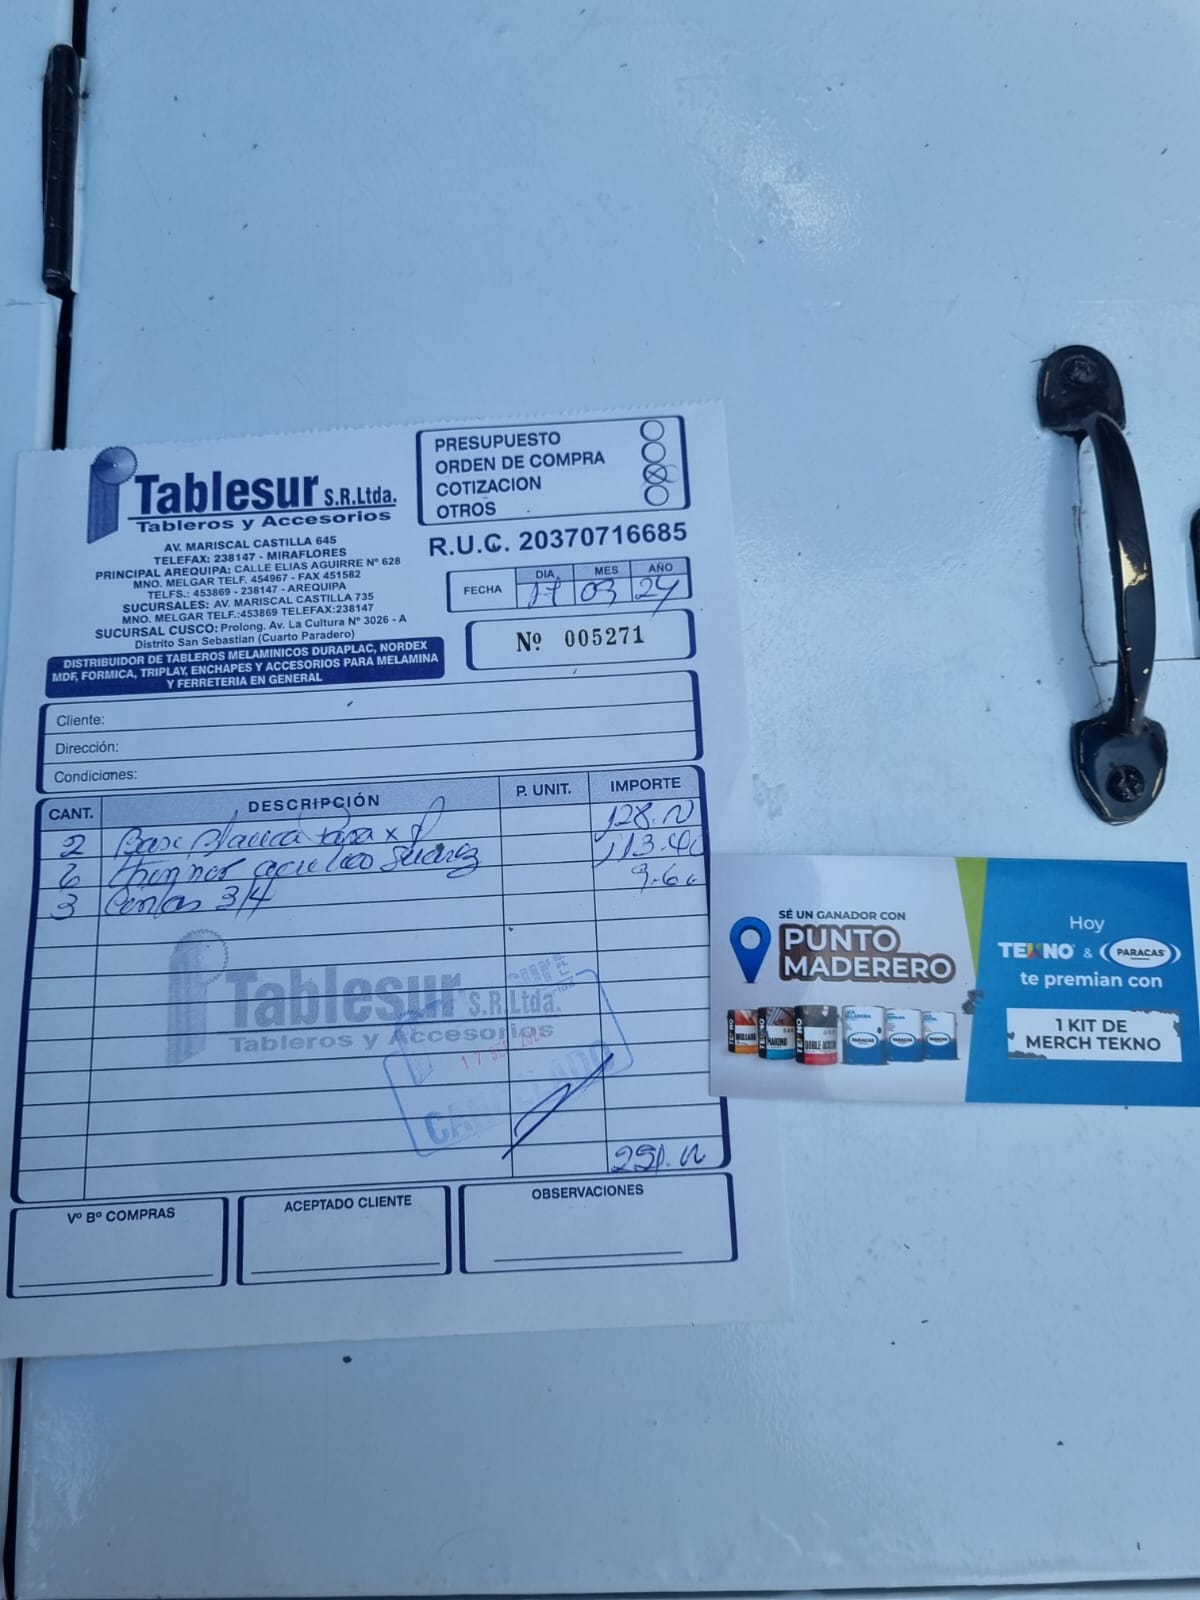 Tablesur S.R.Ltda.
Tableros y Accesorios
AV. MARISCAL CASTILLA 645
TELEFAX: 238147 - MIRAFLORES
PRINCIPAL AREQUIPA: CALLE ELIAS AGUIRRE Nº 628
MNO. MELGAR TELF. 454967 - FAX 451582
TELFS.: 453869 - 238147 - AREQUIPA
SUCURSALES: AV. MARISCAL CASTILLA 735
MNO. MELGAR TELF.:453869 TELEFAX:238147
SUCURSAL CUSCO: Prolong. Av. La Cultura Nº 3026 - A
Distrito San Sebastian (Cuarto Paradero)
DISTRIBUIDOR DE TABLEROS MELAMINICOS DURAPLAC, NORDEX
MDF, FORMICA, TRIPLAY, ENCHAPES Y ACCESORIOS PARA MELAMINA
Y FERRETERIA EN GENERAL
PRESUPUESTO
ORDEN DE COMPRA
COTIZACION
OTROS
R.U.C. 20370716685
FECHA DIA MES AÑO
17 03 24
Nº 005271
Cliente:
Dirección:
Condiciones:
CANT. DESCRIPCIÓN P. UNIT. IMPORTE
2 Base Blanca
6 Thinner acrilico 113.40
3 3/4 9.60
Tablesur S.R.Ltda.
Tableros y Accesorios
17 2024
CANCELADO
Vº Bº COMPRAS
ACEPTADO CLIENTE
OBSERVACIONES
SÉ UN GANADOR CON
PUNTO
MADERERO
Hoy
TEKNO & PARACAS
te premian con
1 KIT DE
MERCH TEKNO